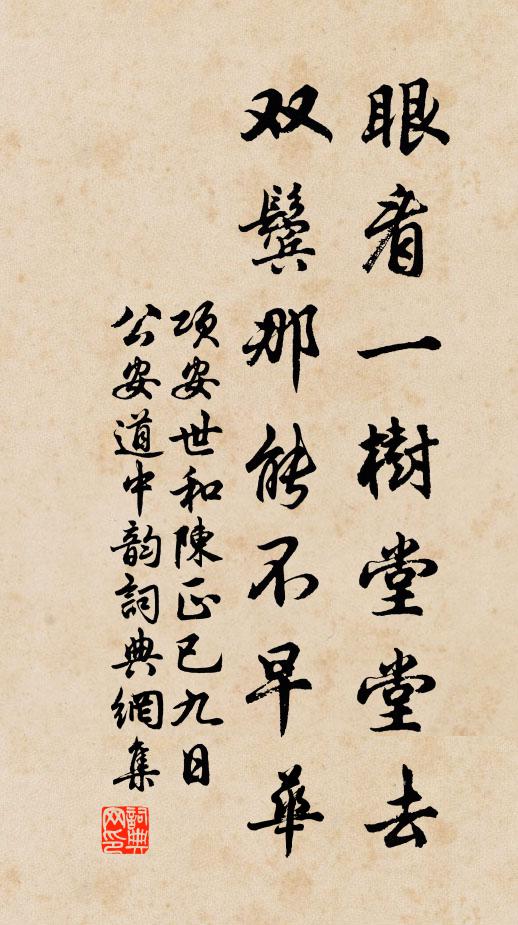 眼看一樹堂堂去
双鬓那能不早華
项安世和陳正已九日
公安道中韵詞典網集
詞典网印